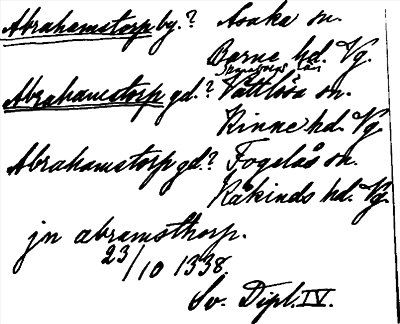 Abrahamstorp by.? Asaka sn.
Barne hd. Vg.
Abrahamstorp gd.? Våttlösa sn.
Kinne hd. Vg.
Abrahamstorp gd.? Fogelås sn.
Kåkinds hd. Vg.
jn abramsthorp.
23/10 1338.
Sv. Dipl. IV.